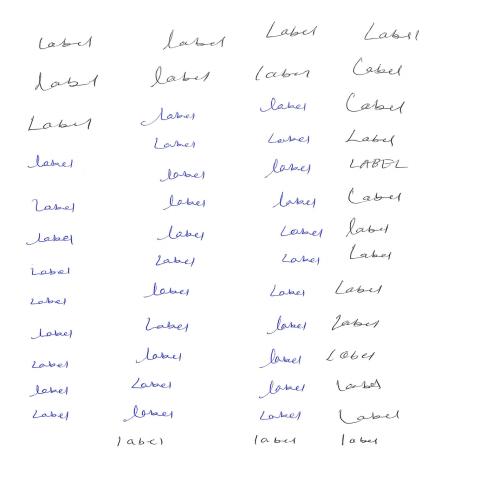 Label label Label Label
label label label Label
Label label label Label
label Label Label Label
Label label label LABEL
label label label Label
Label label Label label
Label Label Label Label
label label Label Label
Label Label label Label
label label label Label
label Label label Label
Label label Label Label
label label label